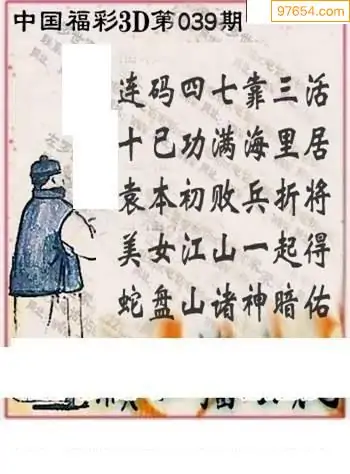 97654.com
中国福彩3D第039期
连码四七靠三活
十已功满海里居
袁本初败兵折将
美女江山一起得
蛇盘山诸神暗佑